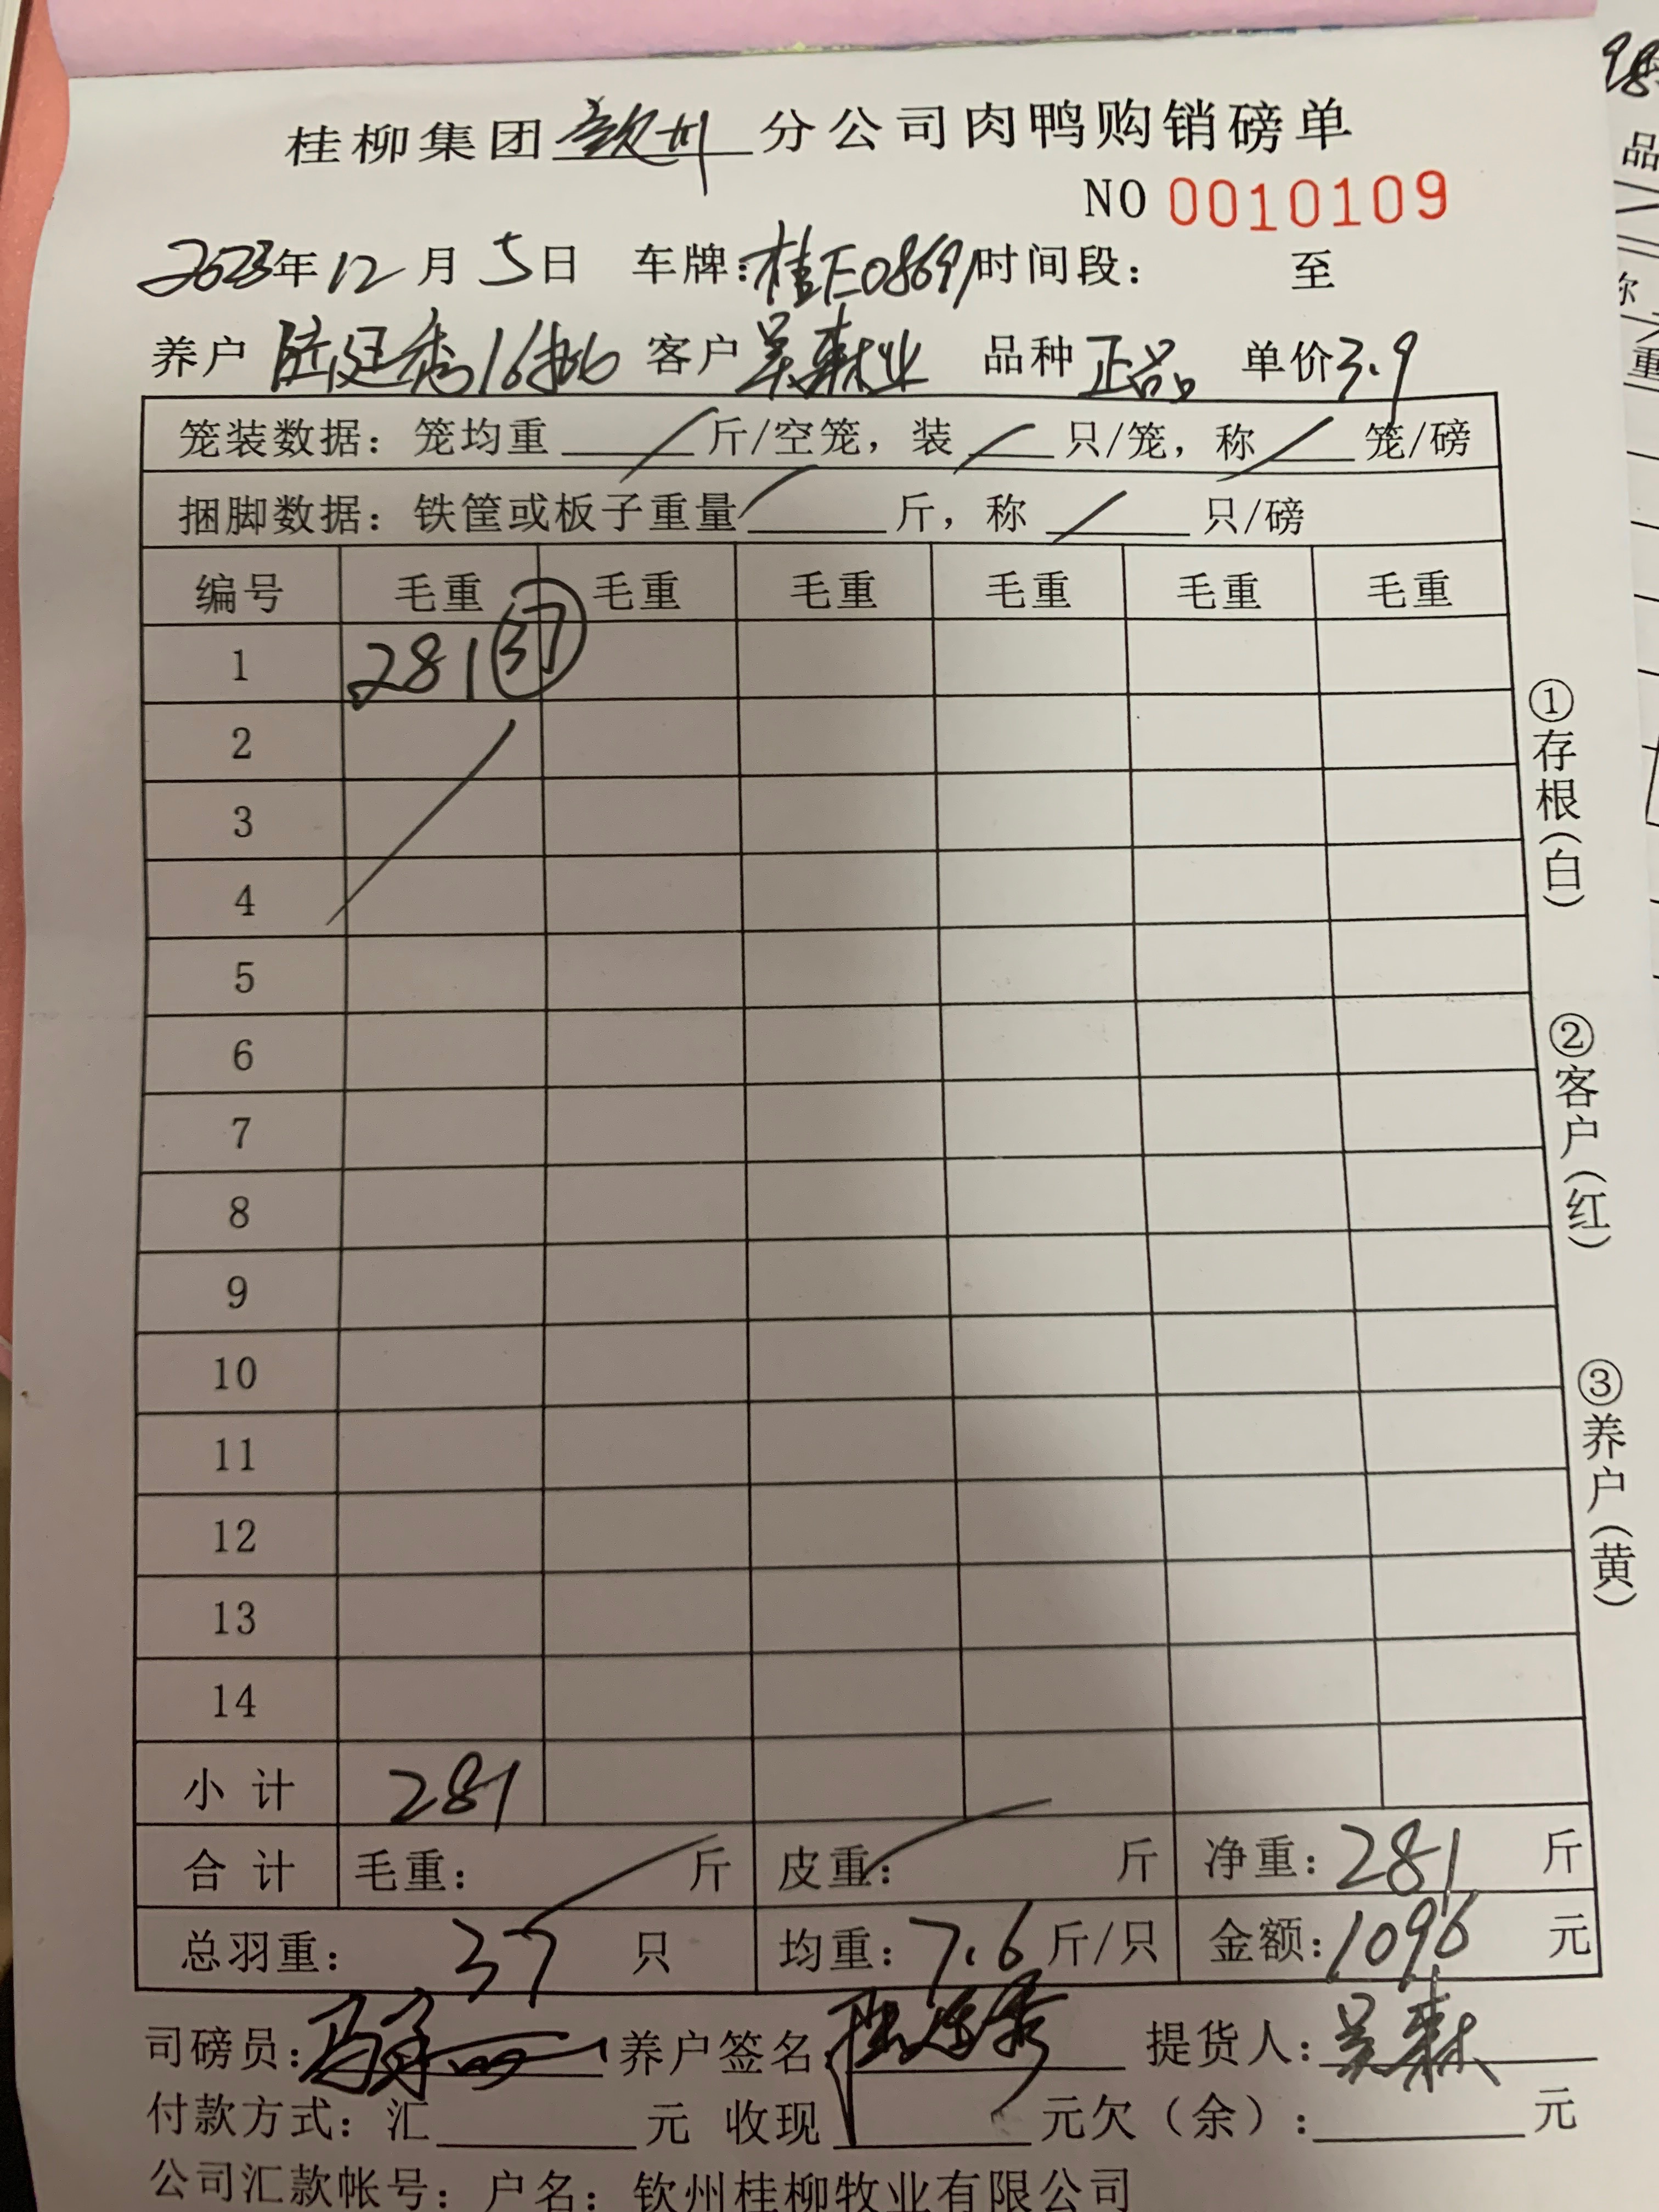 桂柳集团钦州分公司肉鸭购销磅单
NO 0010109
2023年12月5日 车牌:桂E08691时间段: 至
养户 陆廷秀16批 客户 吴森业 品种 正品 单价3.9
笼装数据: 笼均重 / 斤/空笼, 装 / 只/笼, 称 / 笼/磅
捆脚数据: 铁筐或板子重量 / 斤, 称 / 只/磅
编号 毛重 毛重 毛重 毛重 毛重 毛重
1 281 37
2
3
4
5
6
7
8
9
10
11
12
13
14
小计 281
合计 毛重: 斤 皮重: 斤 净重: 281 斤
总羽重: 37 只 均重: 7.6 斤/只 金额: 1096 元
司磅员: 养户签名: 提货人: 吴森
付款方式: 汇 元 收现 元欠(余): 元
公司汇款帐号: 户名: 钦州桂柳牧业有限公司
①存根(白)
②客户(红)
③养户(黄)
98
品
称
重